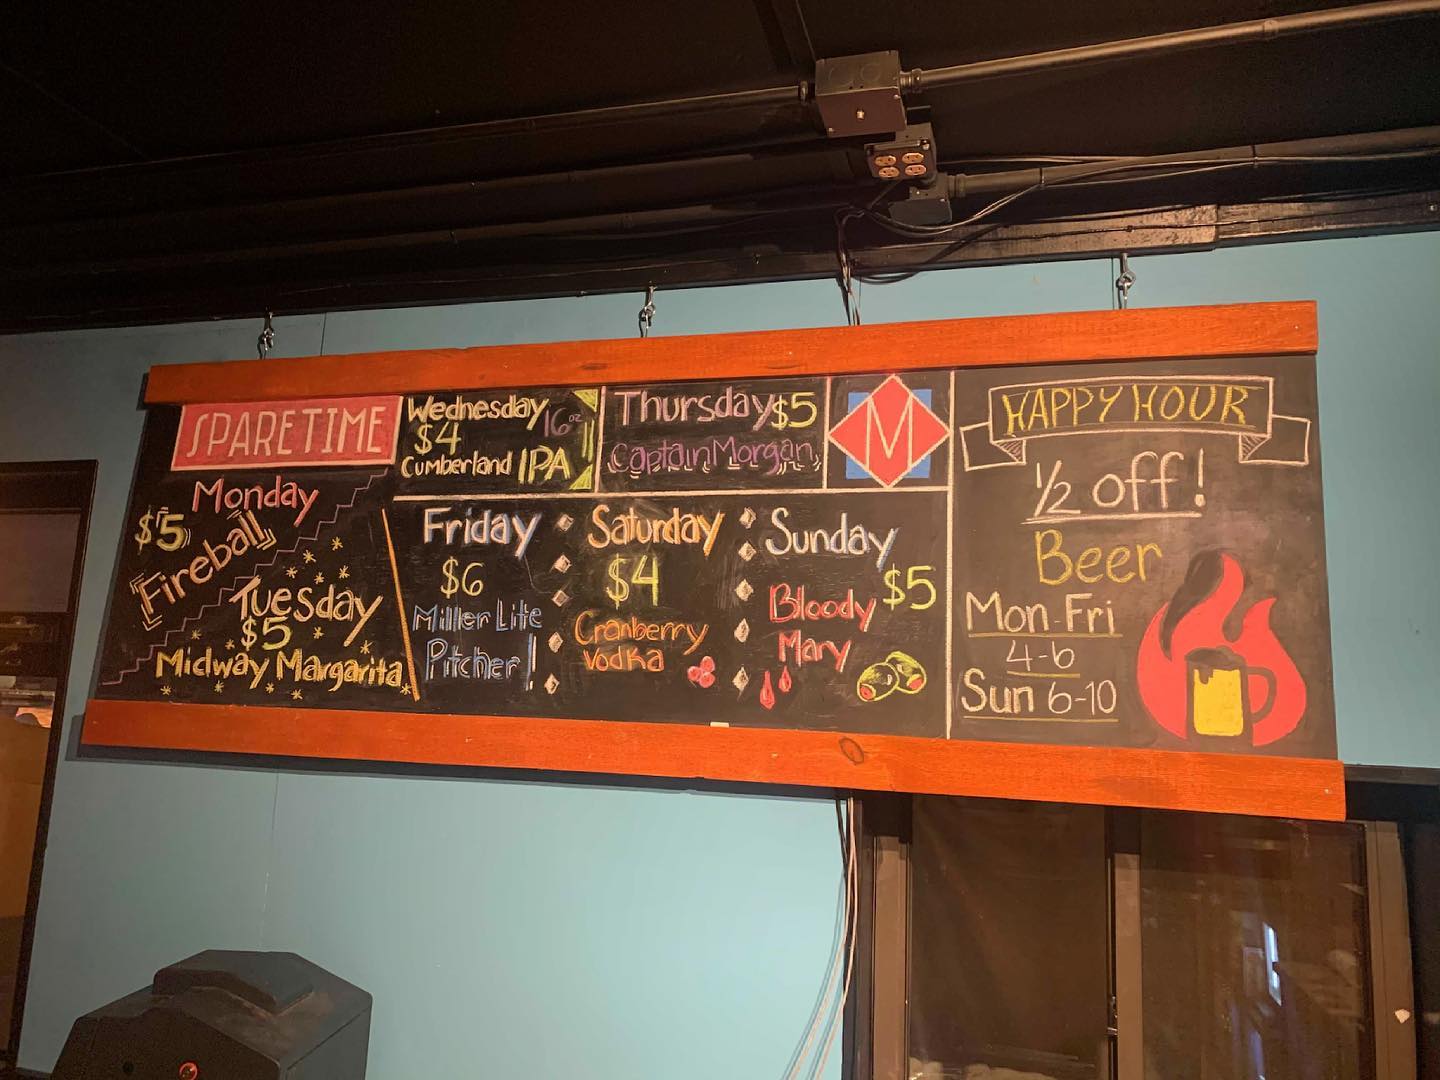 SPARETIME
Monday
$5
Fireball
Tuesday
$5
Midway Margarita
Wednesday
16oz
$4
Cumberland IPA
Thursday $5
Captain Morgan
M
Friday
$6
Miller Lite
Pitcher!
Saturday
$4
Cranberry
Vodka
Sunday
$5
Bloody
Mary
HAPPY HOUR
1/2 off!
Beer
Mon-Fri
4-6
Sun 6-10